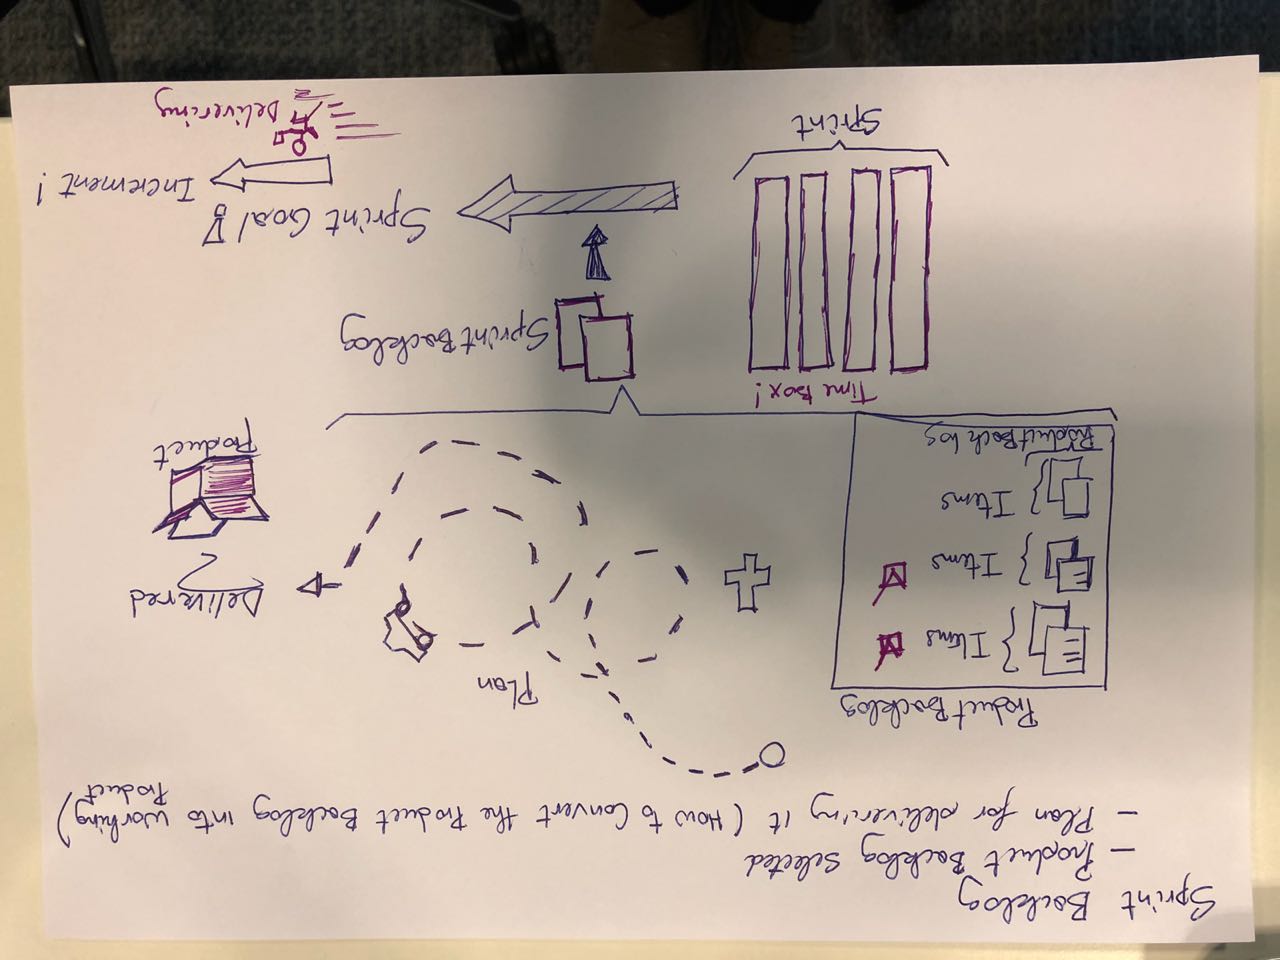 Sprint Backlog
- Product Backlog Selected
- Plan for delivering it (How to Convert the Product Backlog into working
Product)
Product Backlog
Items
Items
Items
Product Back log
Plan
Delivered
Product
Time Box!
Sprint Backlog
Sprint
Sprint Goal!
Increment!
Delivering